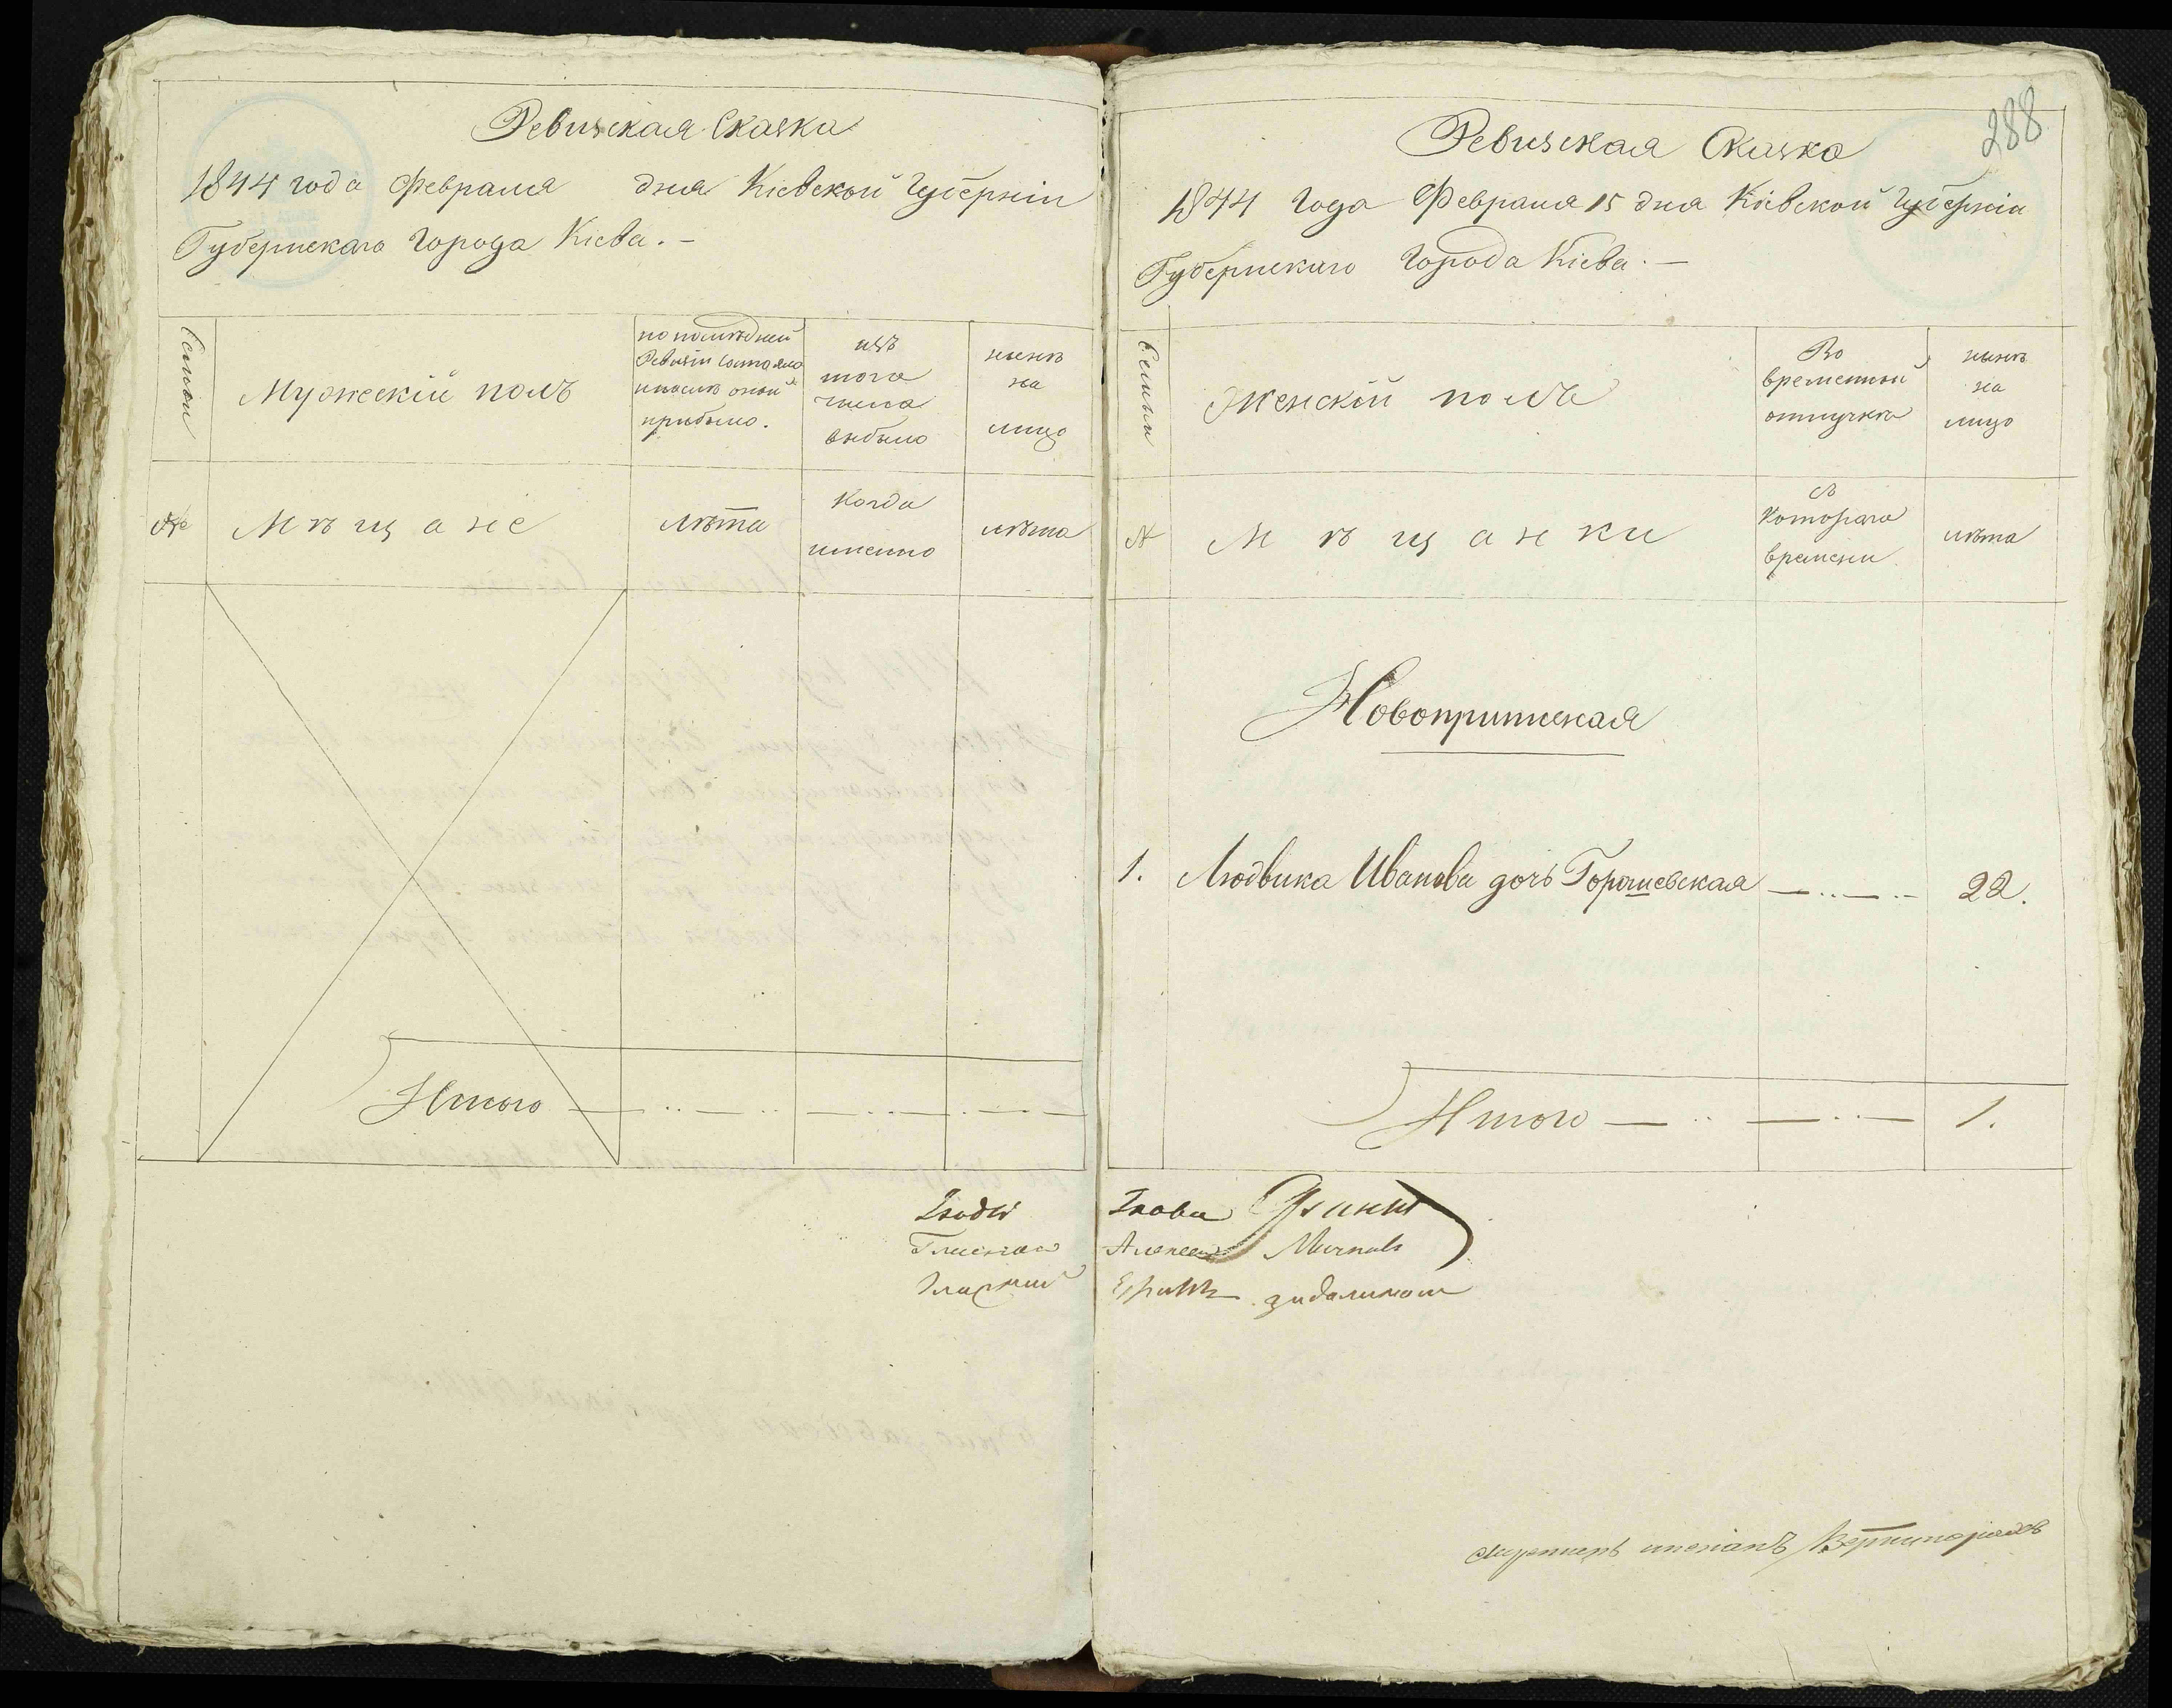 Ревизская Сказка
1844 года Февраля дня Кіевской Губерніи
Губернскаго города Кіева. –
Семьи
Мужескій полъ
по последней
Ревизіи состояло
и после оной
прибыло.
изъ
того
числа
выбыло
ныне
на
лицо
№
Мѣщане
лѣта
Когда
именно
лѣта
Итого
Глава
Гласный
Гласный
288
Ревизская Сказка
1844 Года Февраля 15 дня Кіевской Губерніи
Губернскаго города Кіева. –
Семьи
Женскій полъ
Во
временной
отлучкѣ
нынѣ
на
лицо
№
Мѣщанки
съ
котораго
времени
лѣта
Новопришлая
1. Людвика Иванова дочь Горошевская 22.
Итого 1.
Алексей